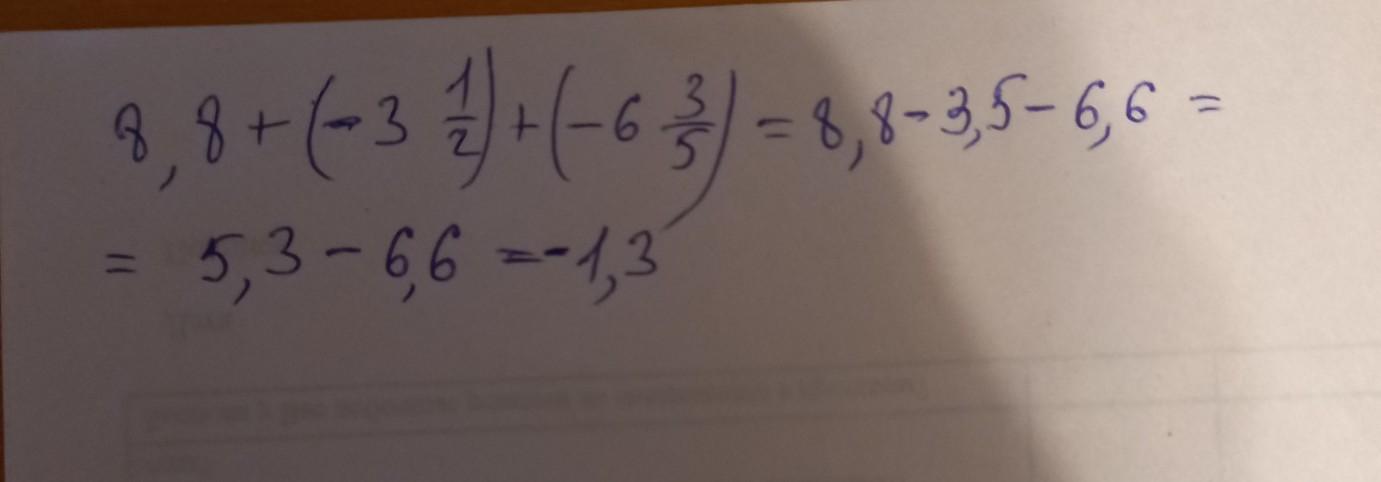 8,8+(-3 1/2)+(-6 3/5)=8,8-3,5-6,6=
= 5,3-6,6=-1,3